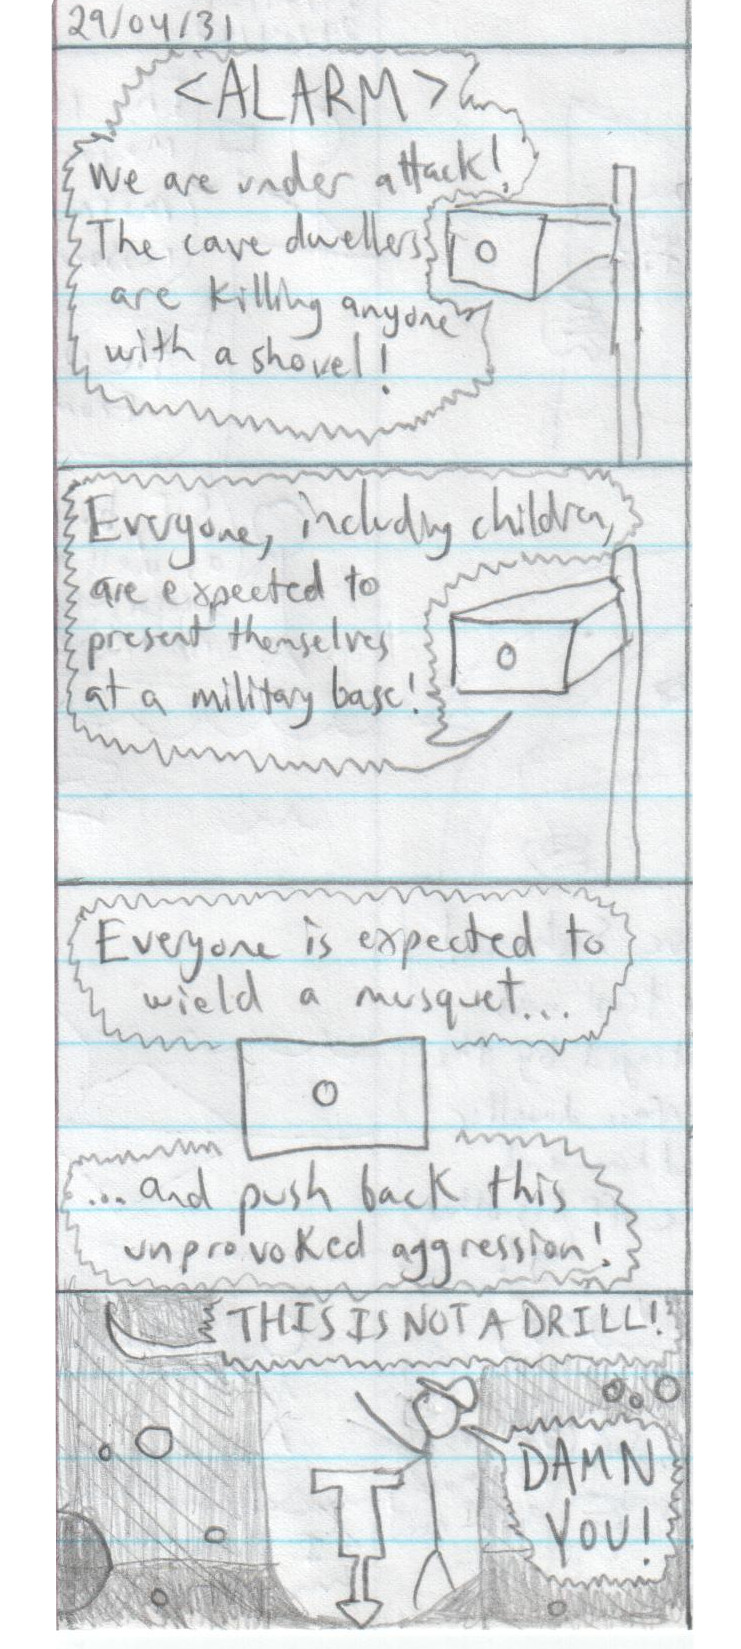 29/04/31
<ALARM>
We are under attack!
The cave dwellers
are killing anyone
with a shovel!
Everyone, including children,
are expected to
present themselves
at a military base!
Everyone is expected to
wield a musquet...
...and push back this
unprovoked aggression!
THIS IS NOT A DRILL!
DAMN
YOU!